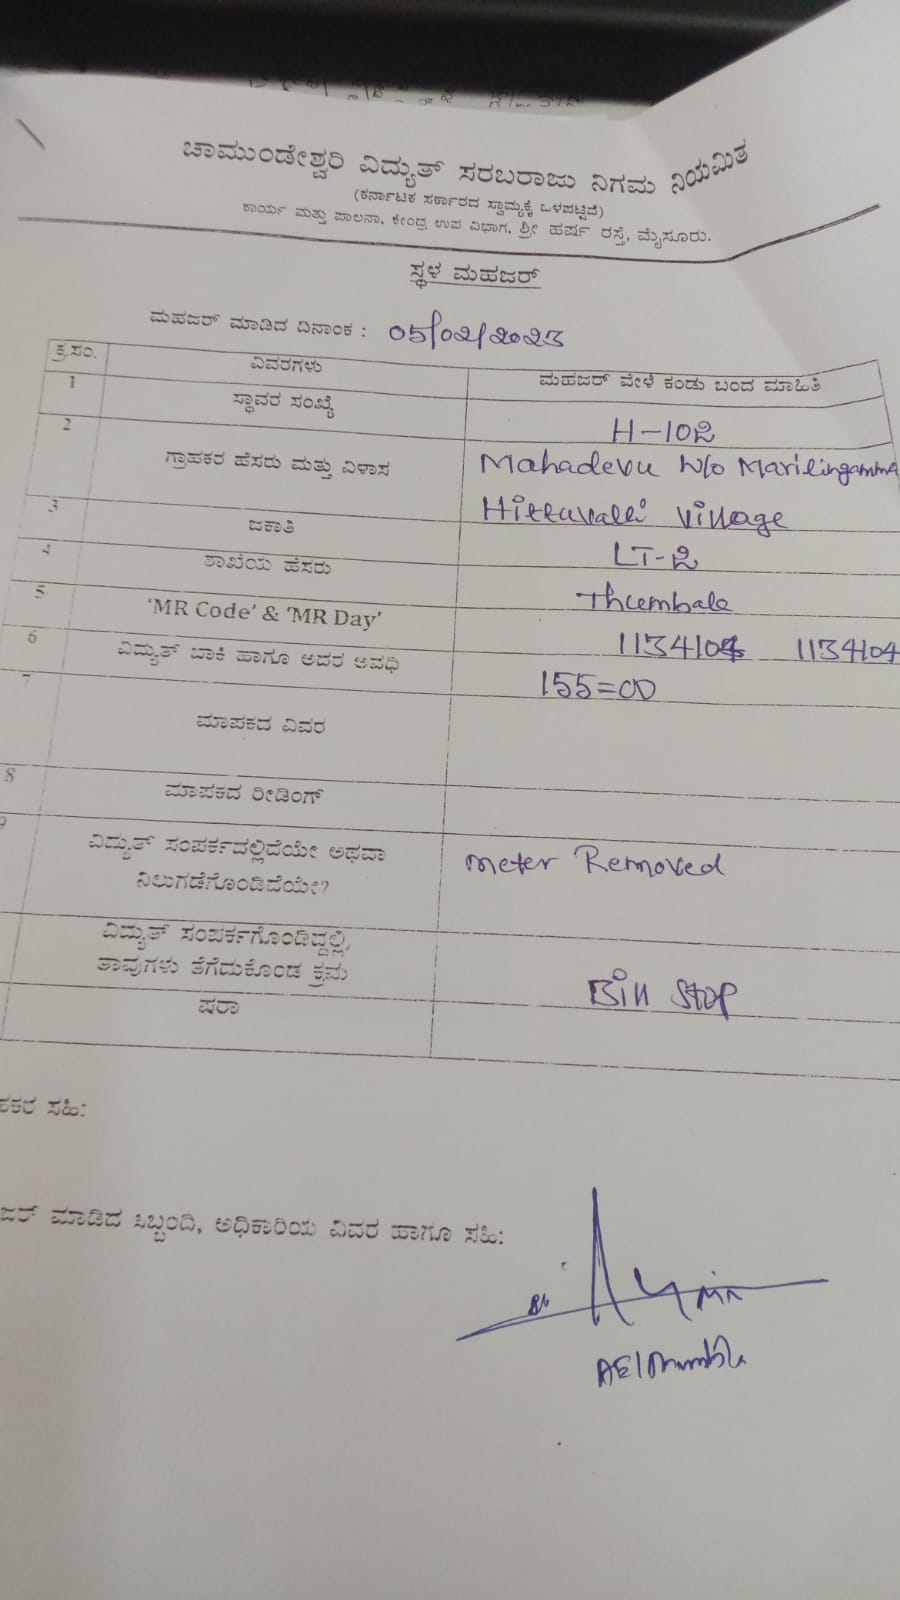 ಚಾಮುಂಡೇಶ್ವರಿ ವಿದ್ಯುತ್ ಸರಬರಾಜು ನಿಗಮ ನಿಯಮಿತ
(ಕರ್ನಾಟಕ ಸರ್ಕಾರದ ಸ್ವಾಮ್ಯಕ್ಕೆ ಒಳಪಟ್ಟಿದೆ)
ಕಾರ್ಯ ಮತ್ತು ಪಾಲನಾ, ಕೇಂದ್ರ ಉಪ ವಿಭಾಗ, ಶ್ರೀ ಹರ್ಷ ರಸ್ತೆ, ಮೈಸೂರು.
ಸ್ಥಳ ಮಹಜರ್
ಮಹಜರ್ ಮಾಡಿದ ದಿನಾಂಕ : 05/02/2023
ಕ್ರ.ಸಂ. ವಿವರಗಳು ಮಹಜರ್ ವೇಳೆ ಕಂಡು ಬಂದ ಮಾಹಿತಿ
1 ಸ್ಥಾವರ ಸಂಖ್ಯೆ H-10ಪಿ
2 ಗ್ರಾಹಕರ ಹೆಸರು ಮತ್ತು ವಿಳಾಸ Mahadevu W/o Marilingamma
Hittuvalli Village
3 ಜಕಾತಿ LT-ಪಿ
4 ಶಾಖೆಯ ಹೆಸರು Thumbala
5 'MR Code' & 'MR Day' 1134104 1134104
6 ವಿದ್ಯುತ್ ಬಾಕಿ ಹಾಗೂ ಅದರ ಅವಧಿ 155=00
7 ಮಾಪಕದ ವಿವರ
8 ಮಾಪಕದ ರೀಡಿಂಗ್
9 ವಿದ್ಯುತ್ ಸಂಪರ್ಕದಲ್ಲಿದೆಯೇ ಅಥವಾ Meter Removed
ನಿಲುಗಡೆಗೊಂಡಿದೆಯೇ?
ವಿದ್ಯುತ್ ಸಂಪರ್ಕಗೊಂಡಿದ್ದಲ್ಲಿ,
ತಾವುಗಳು ತೆಗೆದುಕೊಂಡ ಕ್ರಮ Bill Stop
ಷರಾ
ಸಹಿ:
ಮಾಡಿದ ಸಿಬ್ಬಂದಿ, ಅಧಿಕಾರಿಯ ವಿವರ ಹಾಗೂ ಸಹಿ: